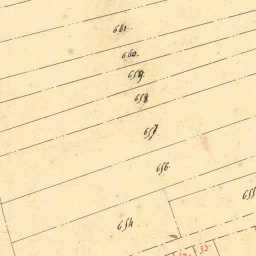 661.
660.
659.
658
657.
656.
655
654